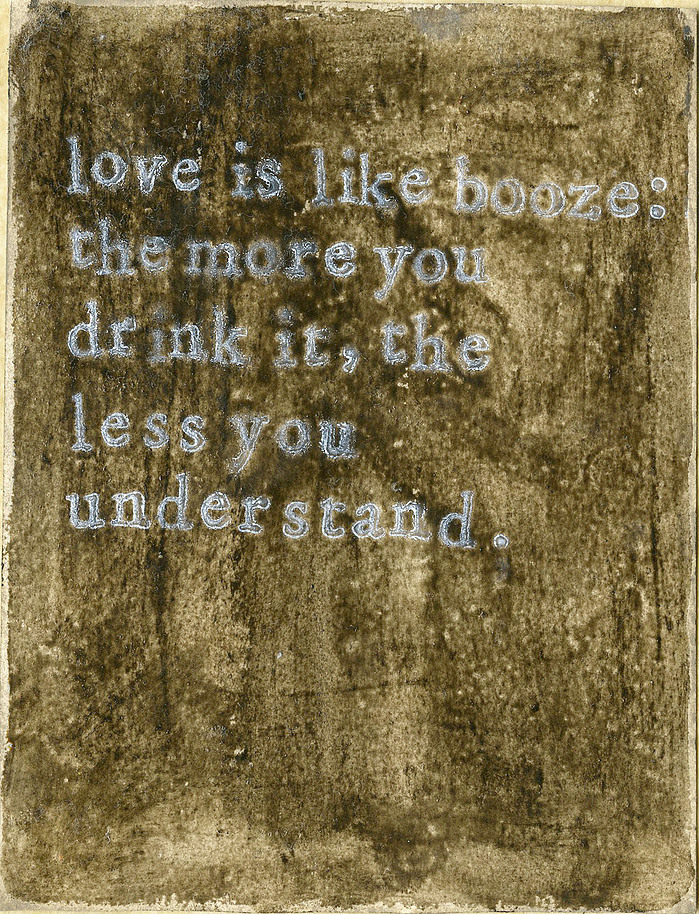 love is like booze:
the more you
drink it, the
less you
understand.